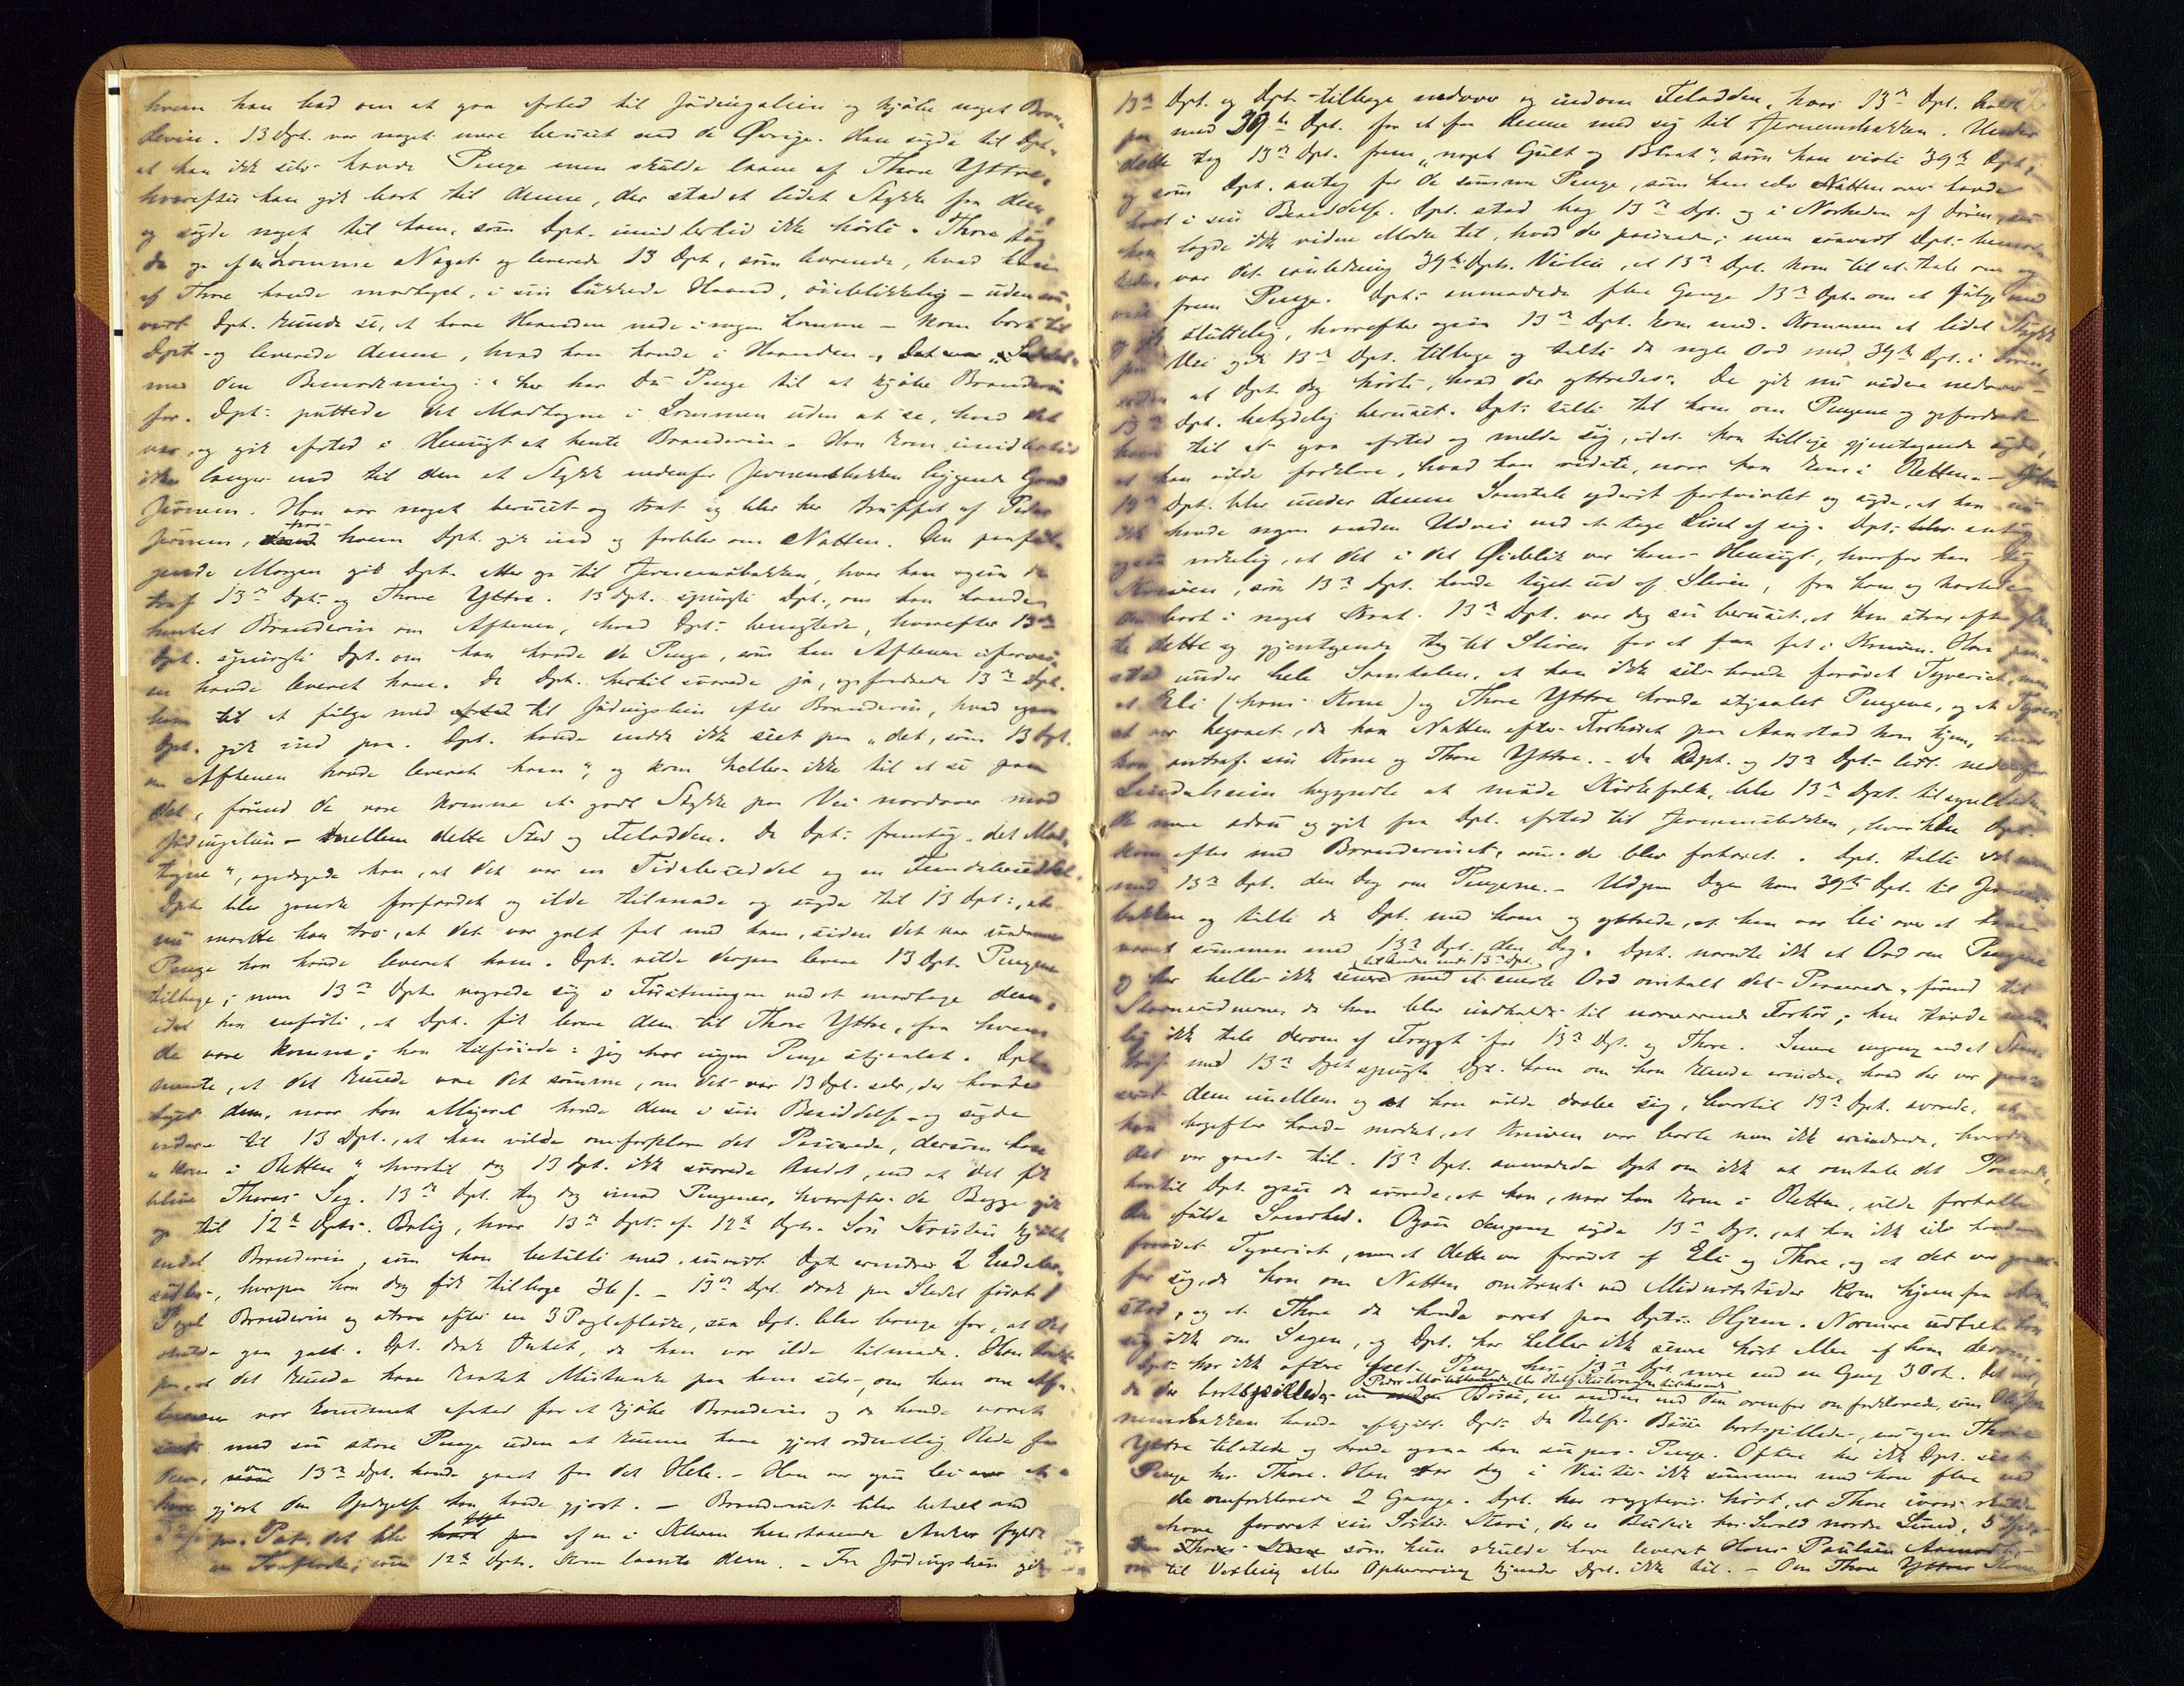 hvem han bad om at gaa afsted til Jödingslien og kjöbe noget Brænde
devin. 13 Dpt. var noget mere beruset end de Øvrige. Han sagde til Dpt.
at han ikke selv havde Penge men skulde laane af Thore Yttre,
hvorefter han gik bort til denne, der stod et lidet Stykke fra dem,
og sagde noget til ham, som Dpt. imidlertid ikke hörte. Thore tog
da op af en Lomme Noget og leverede 13 Dpt., som havende, hvad han
af Thore havde modtaget, i sin lukkede Haand, öieblikkelig – uden saa-
vidt Dpt. kunde se, at have Haanden nede i nogen Lomme – kom bort til
Dpt. og leverede denne, hvad han havde i Haanden
med den Bemærkning: "her har Du Penge til at kjöbe Brændevin
for. Dpt. puttede det Modtagne i Lommen uden at se, hvad det
var, og gik afsted i Hensigt at hente Brændevin. Han kom imidlertid
ikke længer end til den et Stykke nedenfor Jernemsbakken liggende Gaard
Jernem. Han var noget beruset og træt og blev her truffet af Peder
Jernem, hos hvem Dpt. gik ind og forblev om Natten. Den paaföl-
gende Morgen gik Dpt. atter op til Jernemsbakken, hvor han ogsaa da
traf 13de Dpt. og Thore Yttre. 13 Dpt. spurgte Dpt., om han havde
hentet Brændevin om Aftenen, hvad Dpt. benegtede, hvorefter 13de
Dpt. spurgte Dpt. om han havde de Penge, som han Aftenen iforvei-
en havde leveret ham. Da Dpt. hertil svarede ja, opfordrede 13de Dpt.
ham til at fölge med til Jödingslien efter Brændevin, hvad ogsaa
Dpt. gik ind paa. Dpt. havde endda ikke seet paa "det, som 13 Dpt.
om Aftenen havde leveret ham", og kom heller ikke til at se paa
det, förend de vare komne et godt Stykke paa Vei nordover mod
Jödingslien – mellem dette Sted og Teladden. Da Dpt. fremtog "det Mod-
tagne", opdagede han, at det var en Tidalerseddel og en Femdalerseddel.
Dpt. blev ganske forfærdet og ilde tilmode og sagde til 13 Dpt., at
nu maatte han tro, at det var galt fat med ham, siden det var saadanne
Penge han havde leveret ham. Dpt. vilde derpaa levere 13 Dpt. Pengene
tilbage; men 13de Dpt. vægrede sig i Förstningen ved at modtage dem,
idet han anförte, at Dpt. fik levere dem til Thore Yttre, fra hvem
de vare komne; han tilföiede: jeg har ingen Penge stjaalet. Dpt.
mente, at det kunde være det samme, om det var 13 Dpt. selv, der havde
taget dem, naar han alligevel havde dem i sin Besiddelse og sagde
videre til 13 Dpt., at han vilde omforklare det Passerede, dersom han
"kom i Retten", hvortil dog 13 Dpt. ikke svarede Andet, end at det fik
blive Thores Sag. 13de Dpt. tog dog imod Pengene, hvorefter de Begge gik
op til 12te Dpts. Bolig, hvor 13de Dpt. af 12te Dpts. Sön Kristen kjöbte
endel Brændevin, som han betalte med, saavidt Dpt. erindrer 2 Endaler-
sedler, hvorpaa han dog fik tilbage 36 s. – 13de Dpt. drak paa Stedet först 1
Pægel Brændevin og strax efter en 3 Pægleflaske, saa Dpt. blev bange for, at det
skulde gaa galt. Dpt. drak Intet, da han var ilde tilmode. Han tænkte
paa, at det kunde have kastet Mistanke paa ham selv, om han om Af-
tenen var kommet afsted for at kjöbe Brændevin og da havde været
seet med saa store Penge uden at kunne have gjort ordentlig Rede for
dem, om 13de Dpt. havde gaaet fra det Hele. – Han var ogsaa lei over at
have gjort den Opdagelse han havde gjort. – Brændevinet blev betalt med
pr. Pot, det blev tappet paa af en i Kleven henstaaende Anker fyldt
en Tomflaske, som 12te Dpts. Kone laante dem. – Fra Jödingslien gik
13de Dpt. og Dpt. tilbage nedover og indom Teladden, hvor 13de Dpt. holdt
paa med 39te Dpt. for at faa denne med sig til Jernemsbakken. Under
dette tog 13de Dpt. frem "noget Gult og Blaat", som han viste 39te Dpt.,
og som Dpt. antog for de samme Penge, som han selv Natten over havde
havt i sin Besiddelse. Dpt. stod bag 13de Dpt. og i Nærheden af Dören, saa
han lagde ikke videre Mærke til, hvad der passerede; men saavidt Dpt. bemær-
kede, var det i anledning 39te Dpts. Violin, at 13de Dpt. kom til at tale om og
vise frem Penge. Dpt. anmodede flere Gange 13de Dpt. om at fölge med
og gik sluttelig, hvorefter ogsaa 13de Dpt. kom med. Kommen et lidet Stykke
paa Vei gik 13de Dpt. tilbage og talte da nogle Ord med 39te Dpt. i Dören,
uden at Dpt. dog hörte, hvad der yttredes. De gik nu videre nedover –
13de Dpt. betydelig beruset. Dpt. talte til ham om Pengene og opfordrede
ham til at gaa afsted og melde sig, idet han tillige gjentagende sagde,
at han vilde forklare, hvad han vidste, naar han kom i Retten. –
13de Dpt. blev under denne Samtale yderst fortvivlet og sagde, at han nu
ikke havde nogen anden Udvei end at tage Livet af sig. Dpt. antog
ogsaa virkelig, at det i det Øieblik var hans Hensigt, hvorfor han tog
Kniven, som 13de Dpt. havde taget ud af Sliren, fra ham og kastede
den bort i noget Krat. 13de Dpt. var dog saa beruset, at han strax efter glem-
te dette og gjentagende tog til Sliren for at faa fat i Kniven. Han paa-
stod under hele Samtalen, at han ikke selv havde forövet Tyveriet, men
at Eli (hans Kone) og Thore Yttre havde stjaalet Pengene, og at Tyveri-
et var begaaet, da han Natten efter Forhöret paa Aanstad kom hjem, hvor
han antraf sin Kone og Thore Yttre. – Da Dpt. og 13de Dpt. lidt nedenfor
Lindalseien begyndte at möde Kirkefolk, blev 13de Dpt.
de mere ædru og gik fra Dpt. afsted til Jernemsbakken, hvor han Dpt.
kom efter med Brændevinet, som der blev fortæret. Dpt. talte ikke mere
med 13de Dpt. den Dag om Pengene. – Udpaa Dagen kom 39te Dpt. til Jernems-
bakken og talte da Dpt. med ham og yttrede, at han var lei over at have
været sammen med 13de Dpt. den Dag. Dpt. nævnte ikke et Ord om Pengene
og har heller ikke senere til Andre end 13de Dpt. med et eneste Ord omtalt det Passerede, förend til
Stevnevidnerne, da han blev indkaldt til nærværende Forhör; han turde nem-
lig ikke tale derom af Frygt for 13de Dpt. og Thore. Senere engang ved et Sam-
træf med 13de Dpt. spurgte Dpt. ham om han kunde erindre, hvad der var pas-
seret dem imellem og at han vilde dræbe sig, hvortil 13de Dpt. svarede, at
han bagefter havde mærket, at Kniven var borte men ikke erindrede, hvordan
det var gaaet til. 13de Dpt. anmodede Dpt. om ikke at omtale det Passerede,
hvortil Dpt. ogsaa da svarede, at han, naar han kom i Retten, vilde fortælle
den fulde Sandhed. Ogsaa dengang sagde 13de Dpt., at han ikke selv havde
forövet Tyveriet, men at dette var forövet af Eli og Thore, og at det var gaaet
for sig, da han om Natten omtrent ved Midnatstider kom hjem fra Aan-
stad, og at Thore da havde været paa Dpts. Hjem. Nærmere udtalte han
sig ikke om Sagen, og Dpt. har heller ikke senere hört eller af ham derom.
Dpt. har ikke oftere seet Penge hos 13de Dpt. mere end en Gang 3 Ort. Det var,
da der bortspilledes en Bösse, en anden end den ovenfor omforklarede, som
nemsbakken havde afkjöbt Dpt. Da Rolfs Bösse bortspilledes, var ogsaa Thore
Yttre tilstede og havde ogsaa han saa par Penge. Oftere har ikke Dpt. seet
Penge hos Thore. Han var dog i Vinter ikke sammen med ham flere end
de omforklarede 2 Gange. Dpt. har rygtevis hört, at Thore ivaar skulde
have foræret sin Söster Mari, der er Budeie hos Sivald nordre Lund, 5 Spd.
som hun skulde have leveret Hans Paulsen
til Vexling eller Opbevaring kjender Dpt. ikke til. – Om Thore